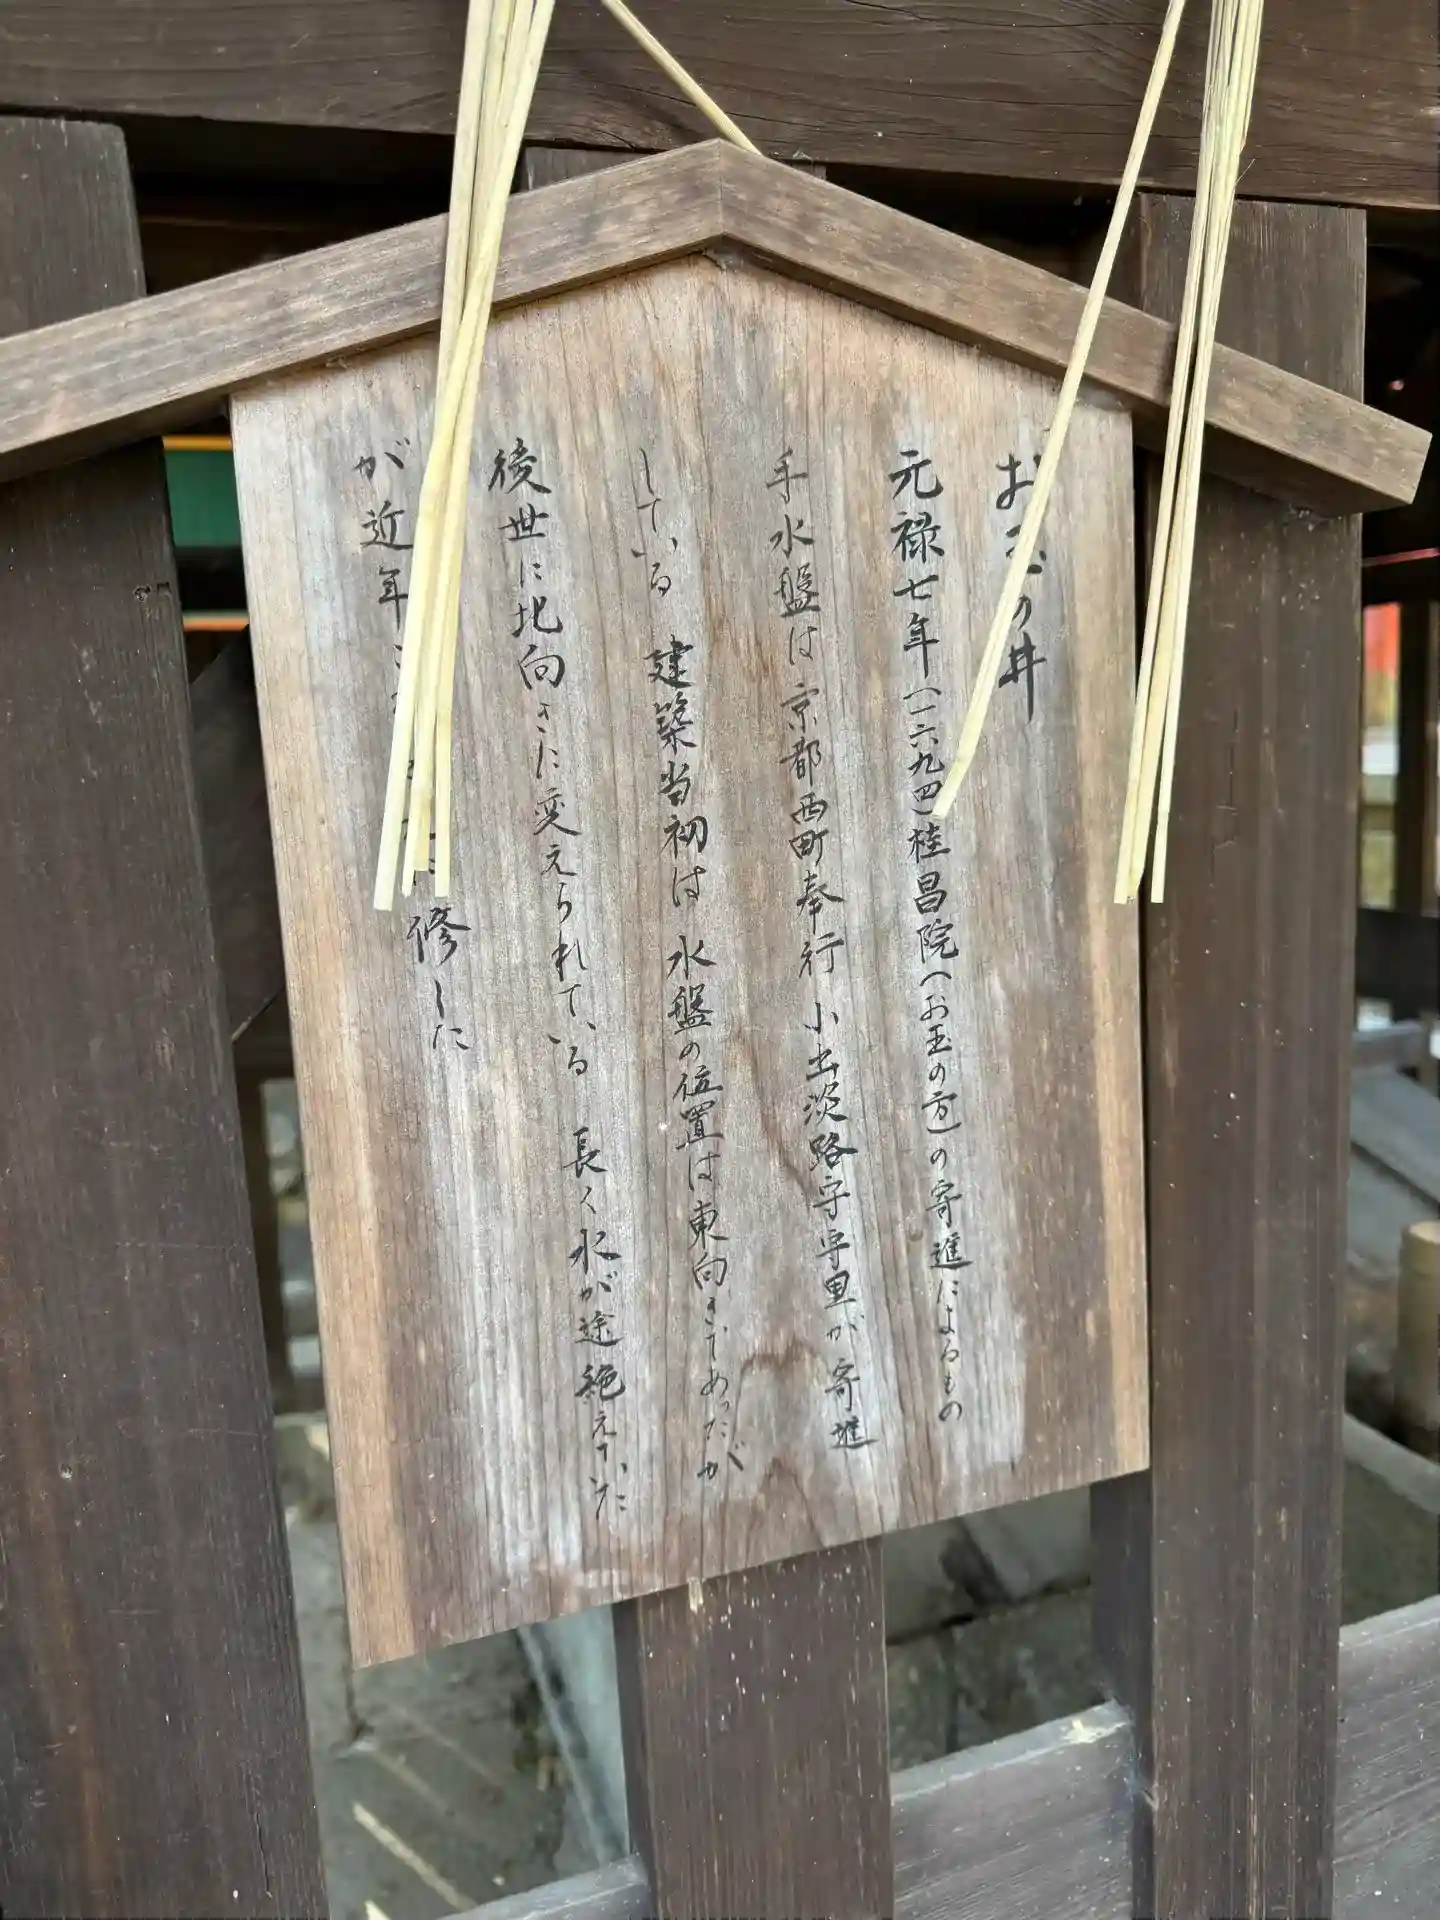 お の井
元禄七年(一六九四)桂昌院(お玉の方)の寄進によるもの
手水盤は 京都西町奉行 小出淡路守守里が寄進
している 建築当初は 水盤の位置は東向きであったが
後世に北向きに変えられている 長く水が途絶えていた
が近年 修した